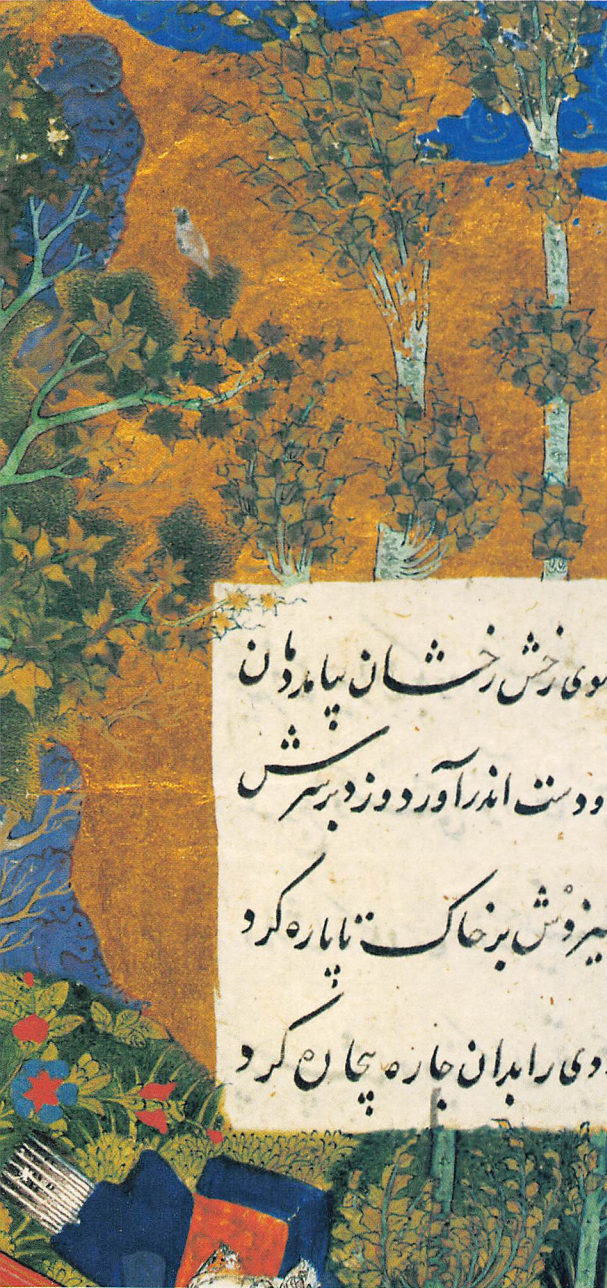 سوی رخش رخشان بیامد دمان
و دست اندر آورد و زد بر سرش
بر خاک تا پاره کرد
ددی را بدان چاره بیچاره کرد